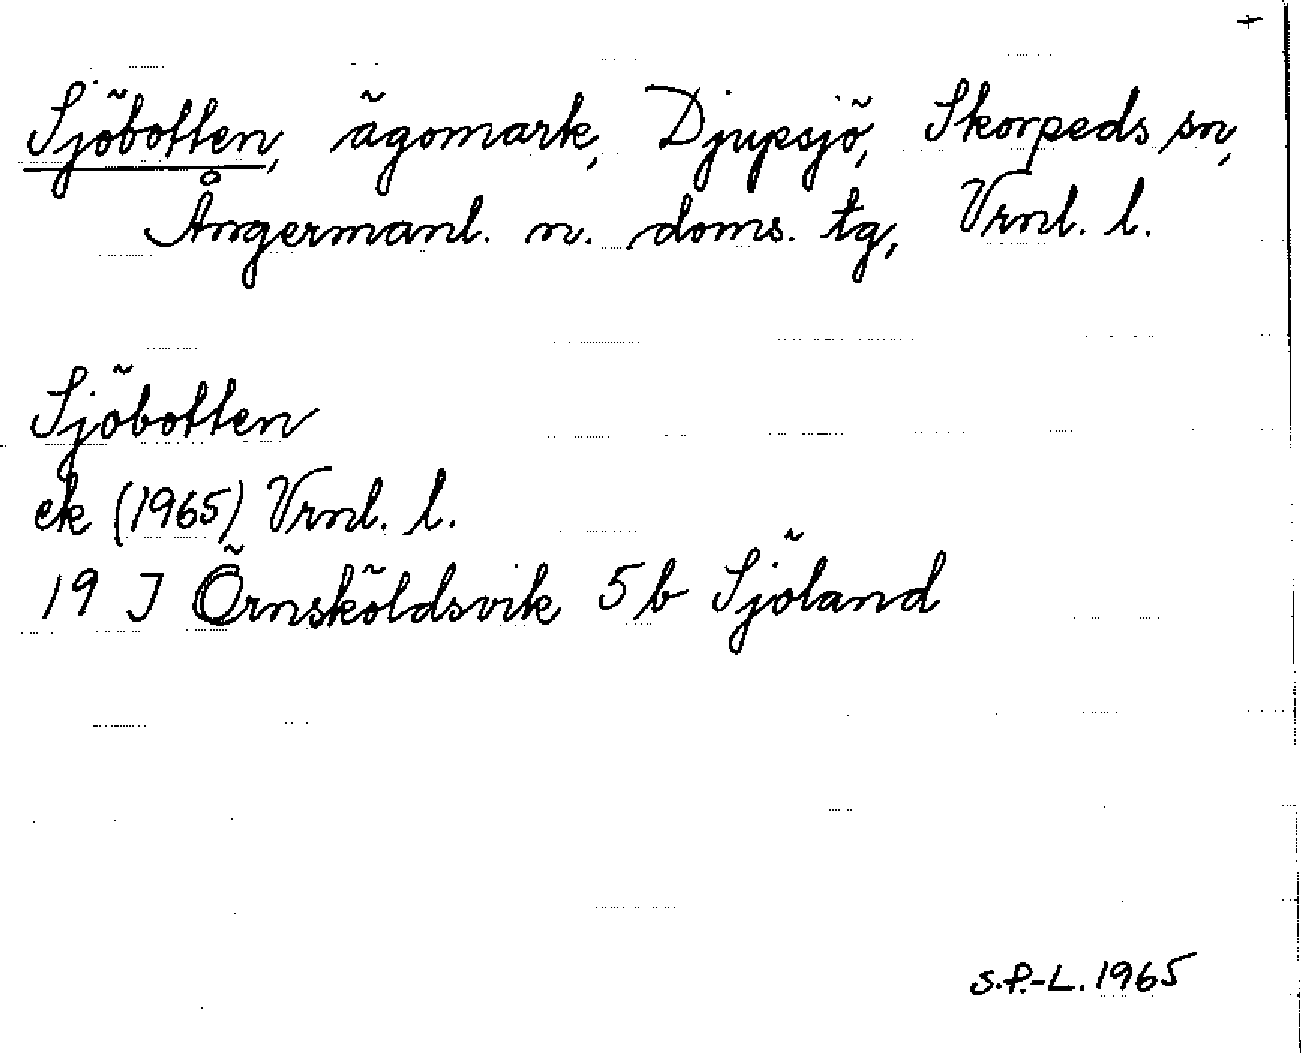 +
Sjöbotten, ägomark, Djupsjö, Skorpeds sn,
Ångermanl. n. doms. tg, Vrnl. l.
Sjöbotten
ek (1965) Vrnl. l.
19 J Örnsköldsvik 5 b Sjöland
S.P.-L. 1965